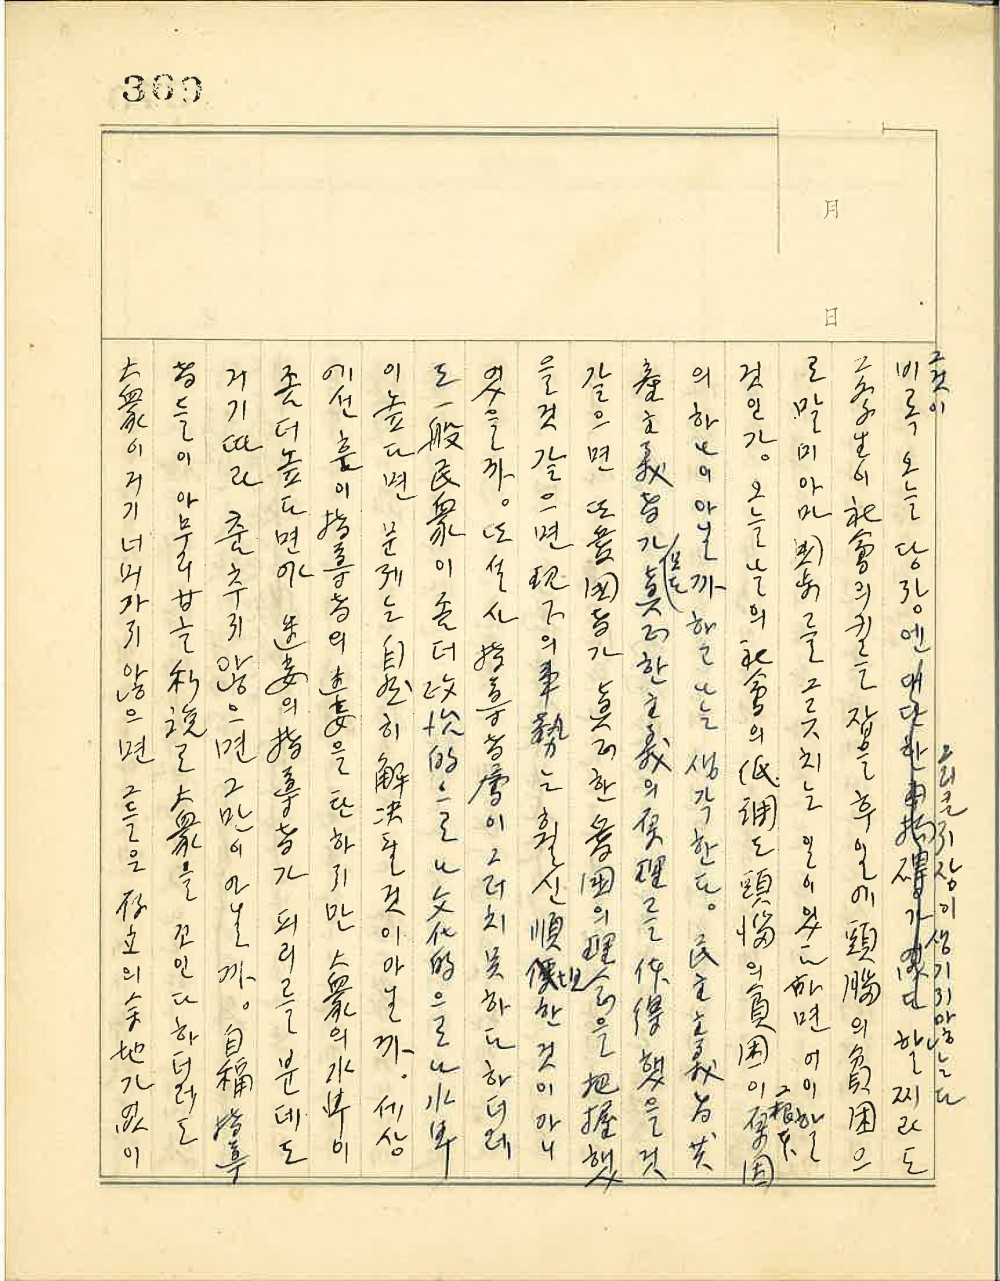 369
月
日
그것이
비록 오늘 당장엔 그리 큰 지장이 생기지 않는다 할찌라도
그 學生이 社會의 키를 잡을 후일에 頭腦의 貧困으
로 말미아마 國步를 그르치는 일이 있다 하면 어이 할
것인가. 오늘날의 社會의 低調도 頭腦의 貧困이 그 根本 原因
의 하나이 아닐까 하고 나는 생각한다. 民主主義者 共
産主義者가 모도 眞正한 主義의 原理를 体得했을것
같으면 또 愛國者가 眞正한 愛國의 理念을 把握했
을것 같으면 現下의 事勢는 훨신 順坦한 것이 아니
였을까. 또 설사 指導者層이 그러치 못하다 하더래
도 一般民衆이 좀더 政治的으로나 文化的으로나 水準
이 높다면 문제는 自然히 解決될것이 아닐까. 세상
에선 흔이 指導者의 迷妄을 탄하지만 大衆의 水準이
좀더 높다면야 迷妄의 指導者가 피리를 분데도
거기 따라 춤추지 않으면 그만이 아닐까. 自稱指導
者들이 아무리 甘言利說로 大衆을 꼬인다 하더래도
大衆이 거기 너머가지 않으면 그들은 存立의 余地가 없이